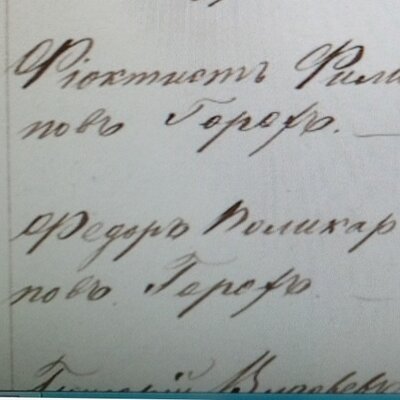 Фіоктистъ Фили
повъ Горохъ.
Федоръ Поликар
повъ Горохъ